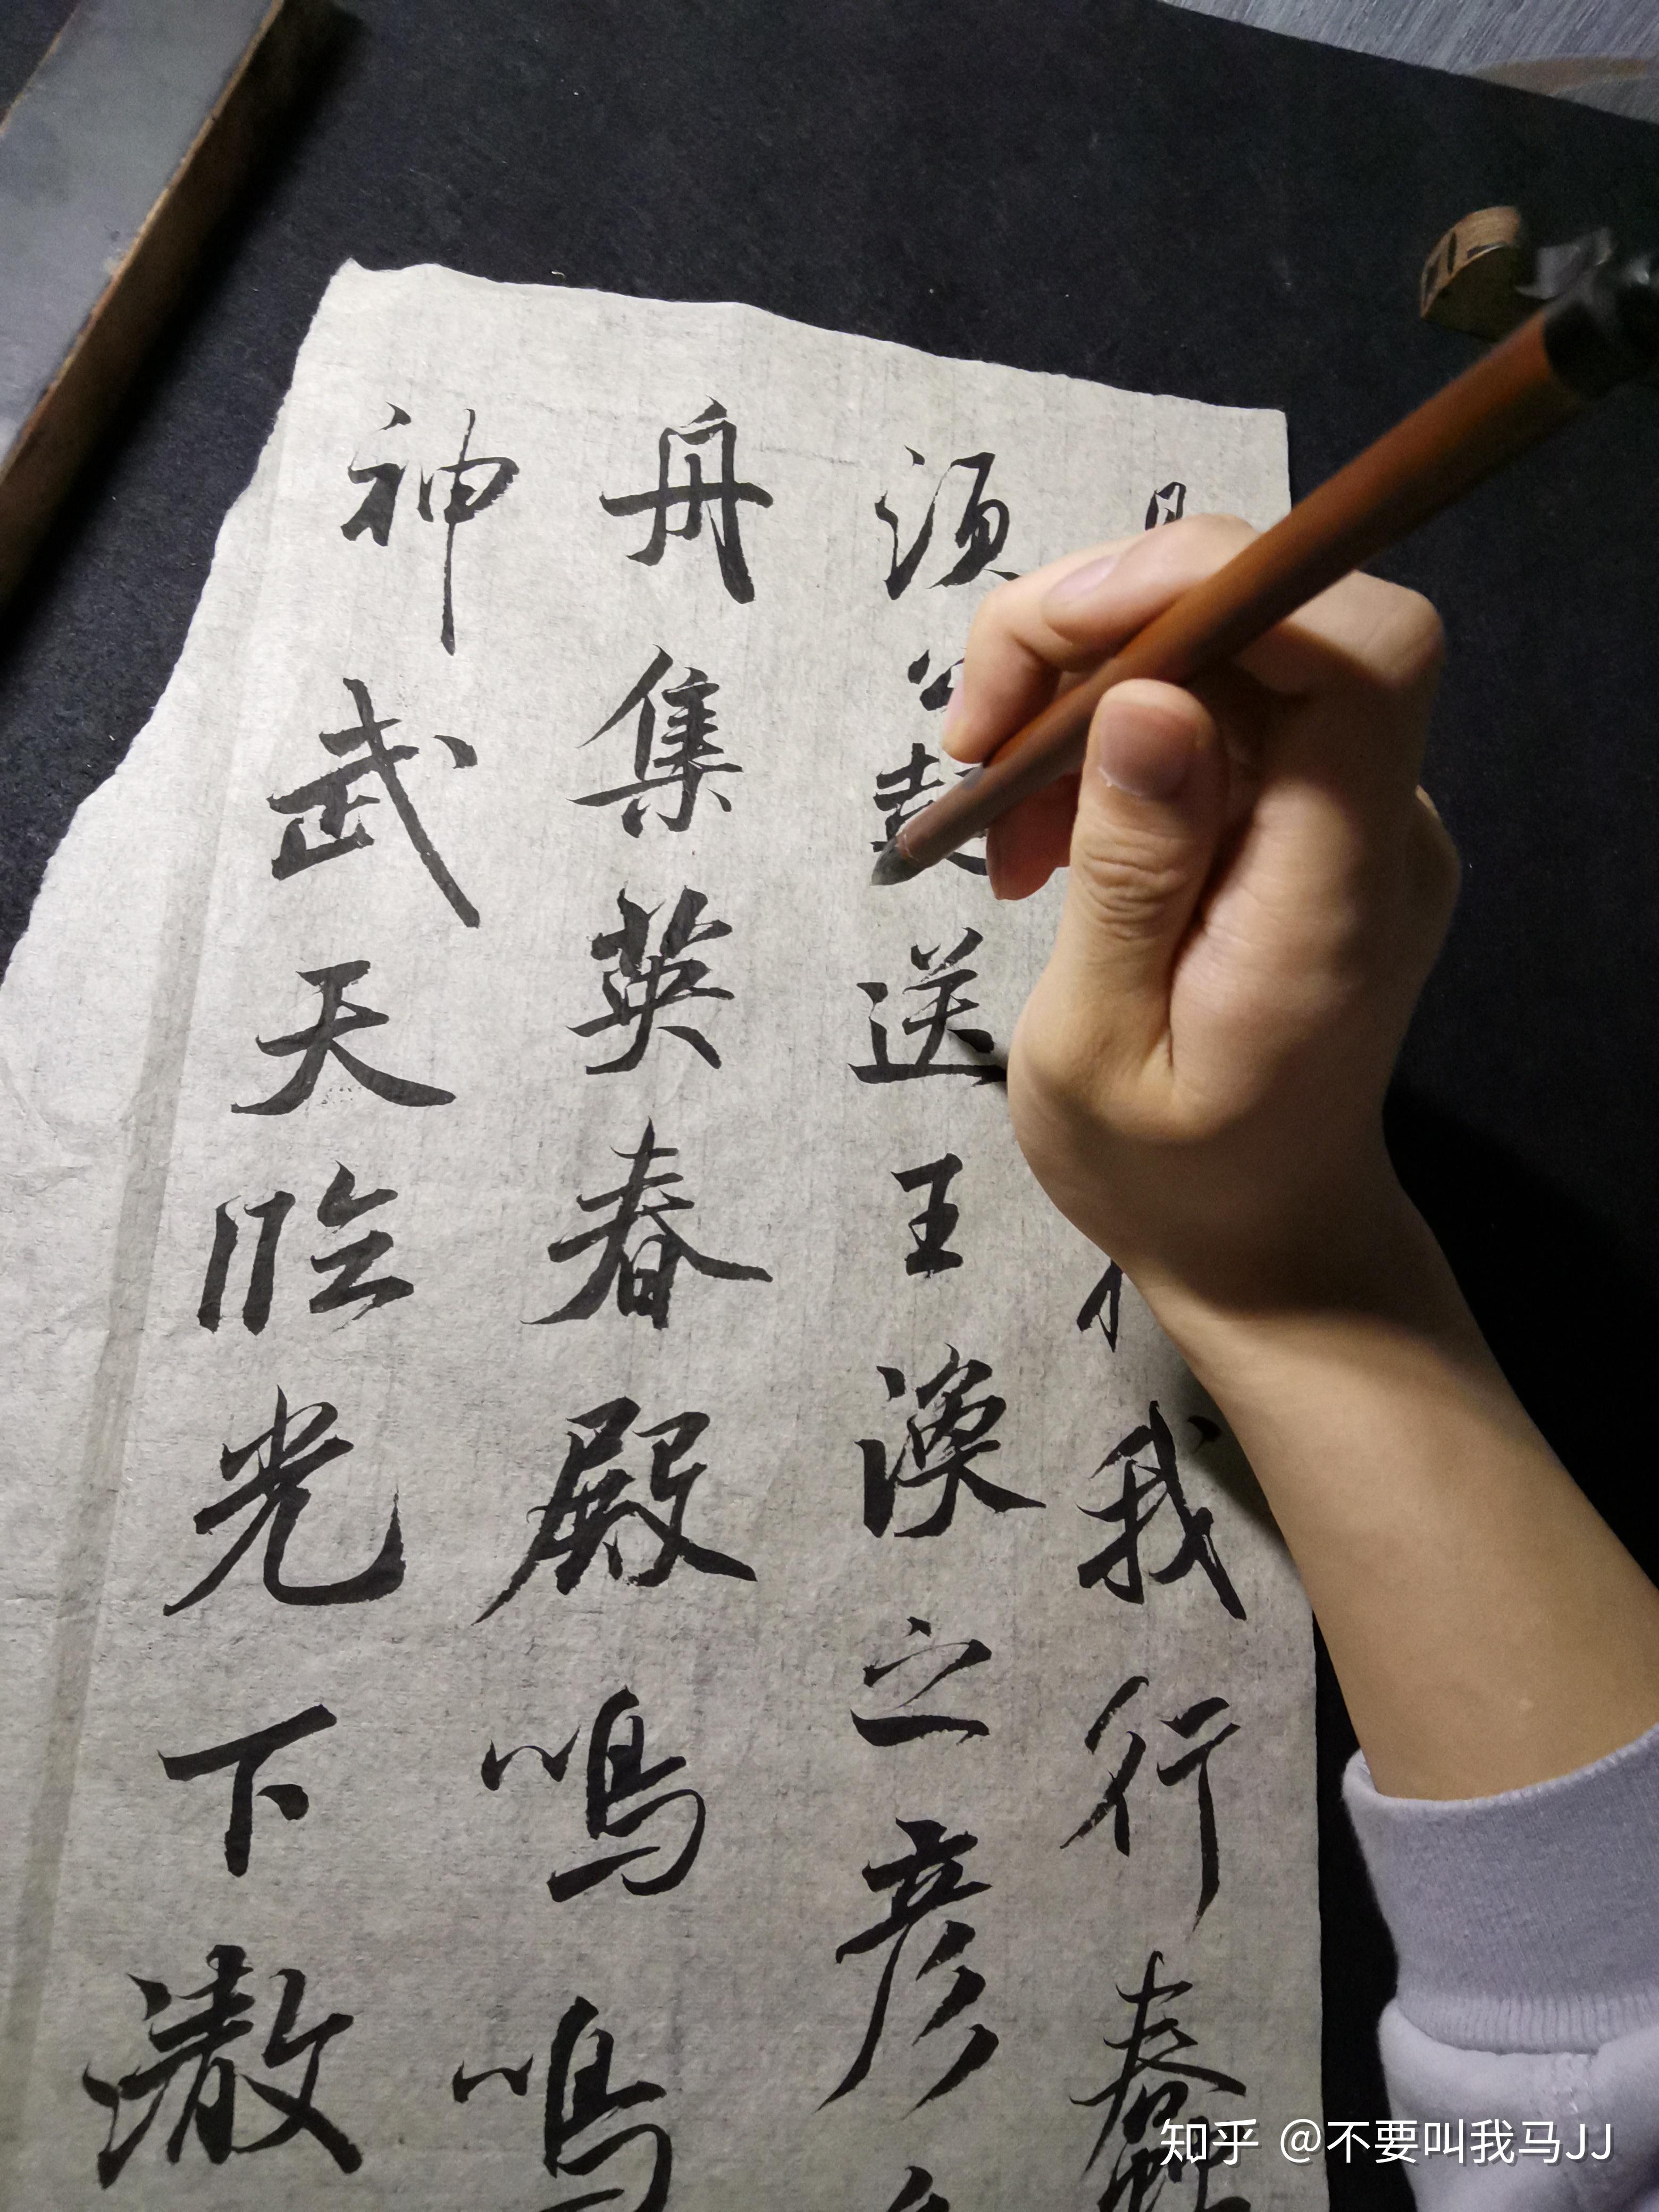 我行
湏公送王渙之彦
舟集英春殿鳴鳴
神武天臨光下澈
知乎 @不要叫我马JJ